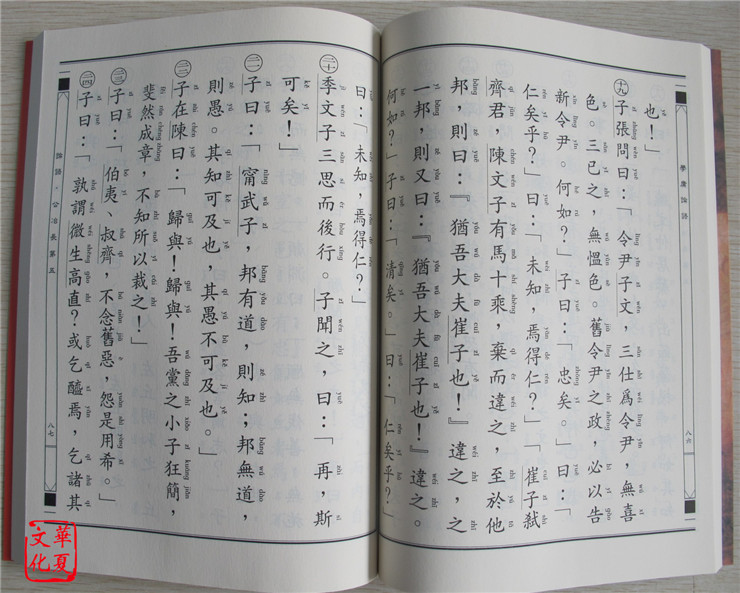 學庸論語
八六
也！」
⑲子張問曰：「令尹子文，三仕為令尹，無喜
色。三已之，無慍色。舊令尹之政，必以告
新令尹。何如？」子曰：「忠矣。」曰：「
仁矣乎？」曰：「未知，焉得仁？」「崔子弒
齊君，陳文子有馬十乘，棄而違之，至於他
邦，則曰：『猶吾大夫崔子也！』違之，之
一邦，則又曰：『猶吾大夫崔子也！』違之。
何如？」子曰：「清矣。」曰：「仁矣乎？」
曰：「未知，焉得仁？」
⑳季文子三思而後行。子聞之，曰：「再，斯
可矣！」
㉑子曰：「甯武子，邦有道，則知；邦無道，
則愚。其知可及也，其愚不可及也。」
㉒子在陳曰：「歸與！歸與！吾黨之小子狂簡，
斐然成章，不知所以裁之！」
㉓子曰：「伯夷、叔齊，不念舊惡，怨是用希。」
㉔子曰：「孰謂微生高直？或乞醯焉，乞諸其
論語·公冶長第五
八七
華夏
文化